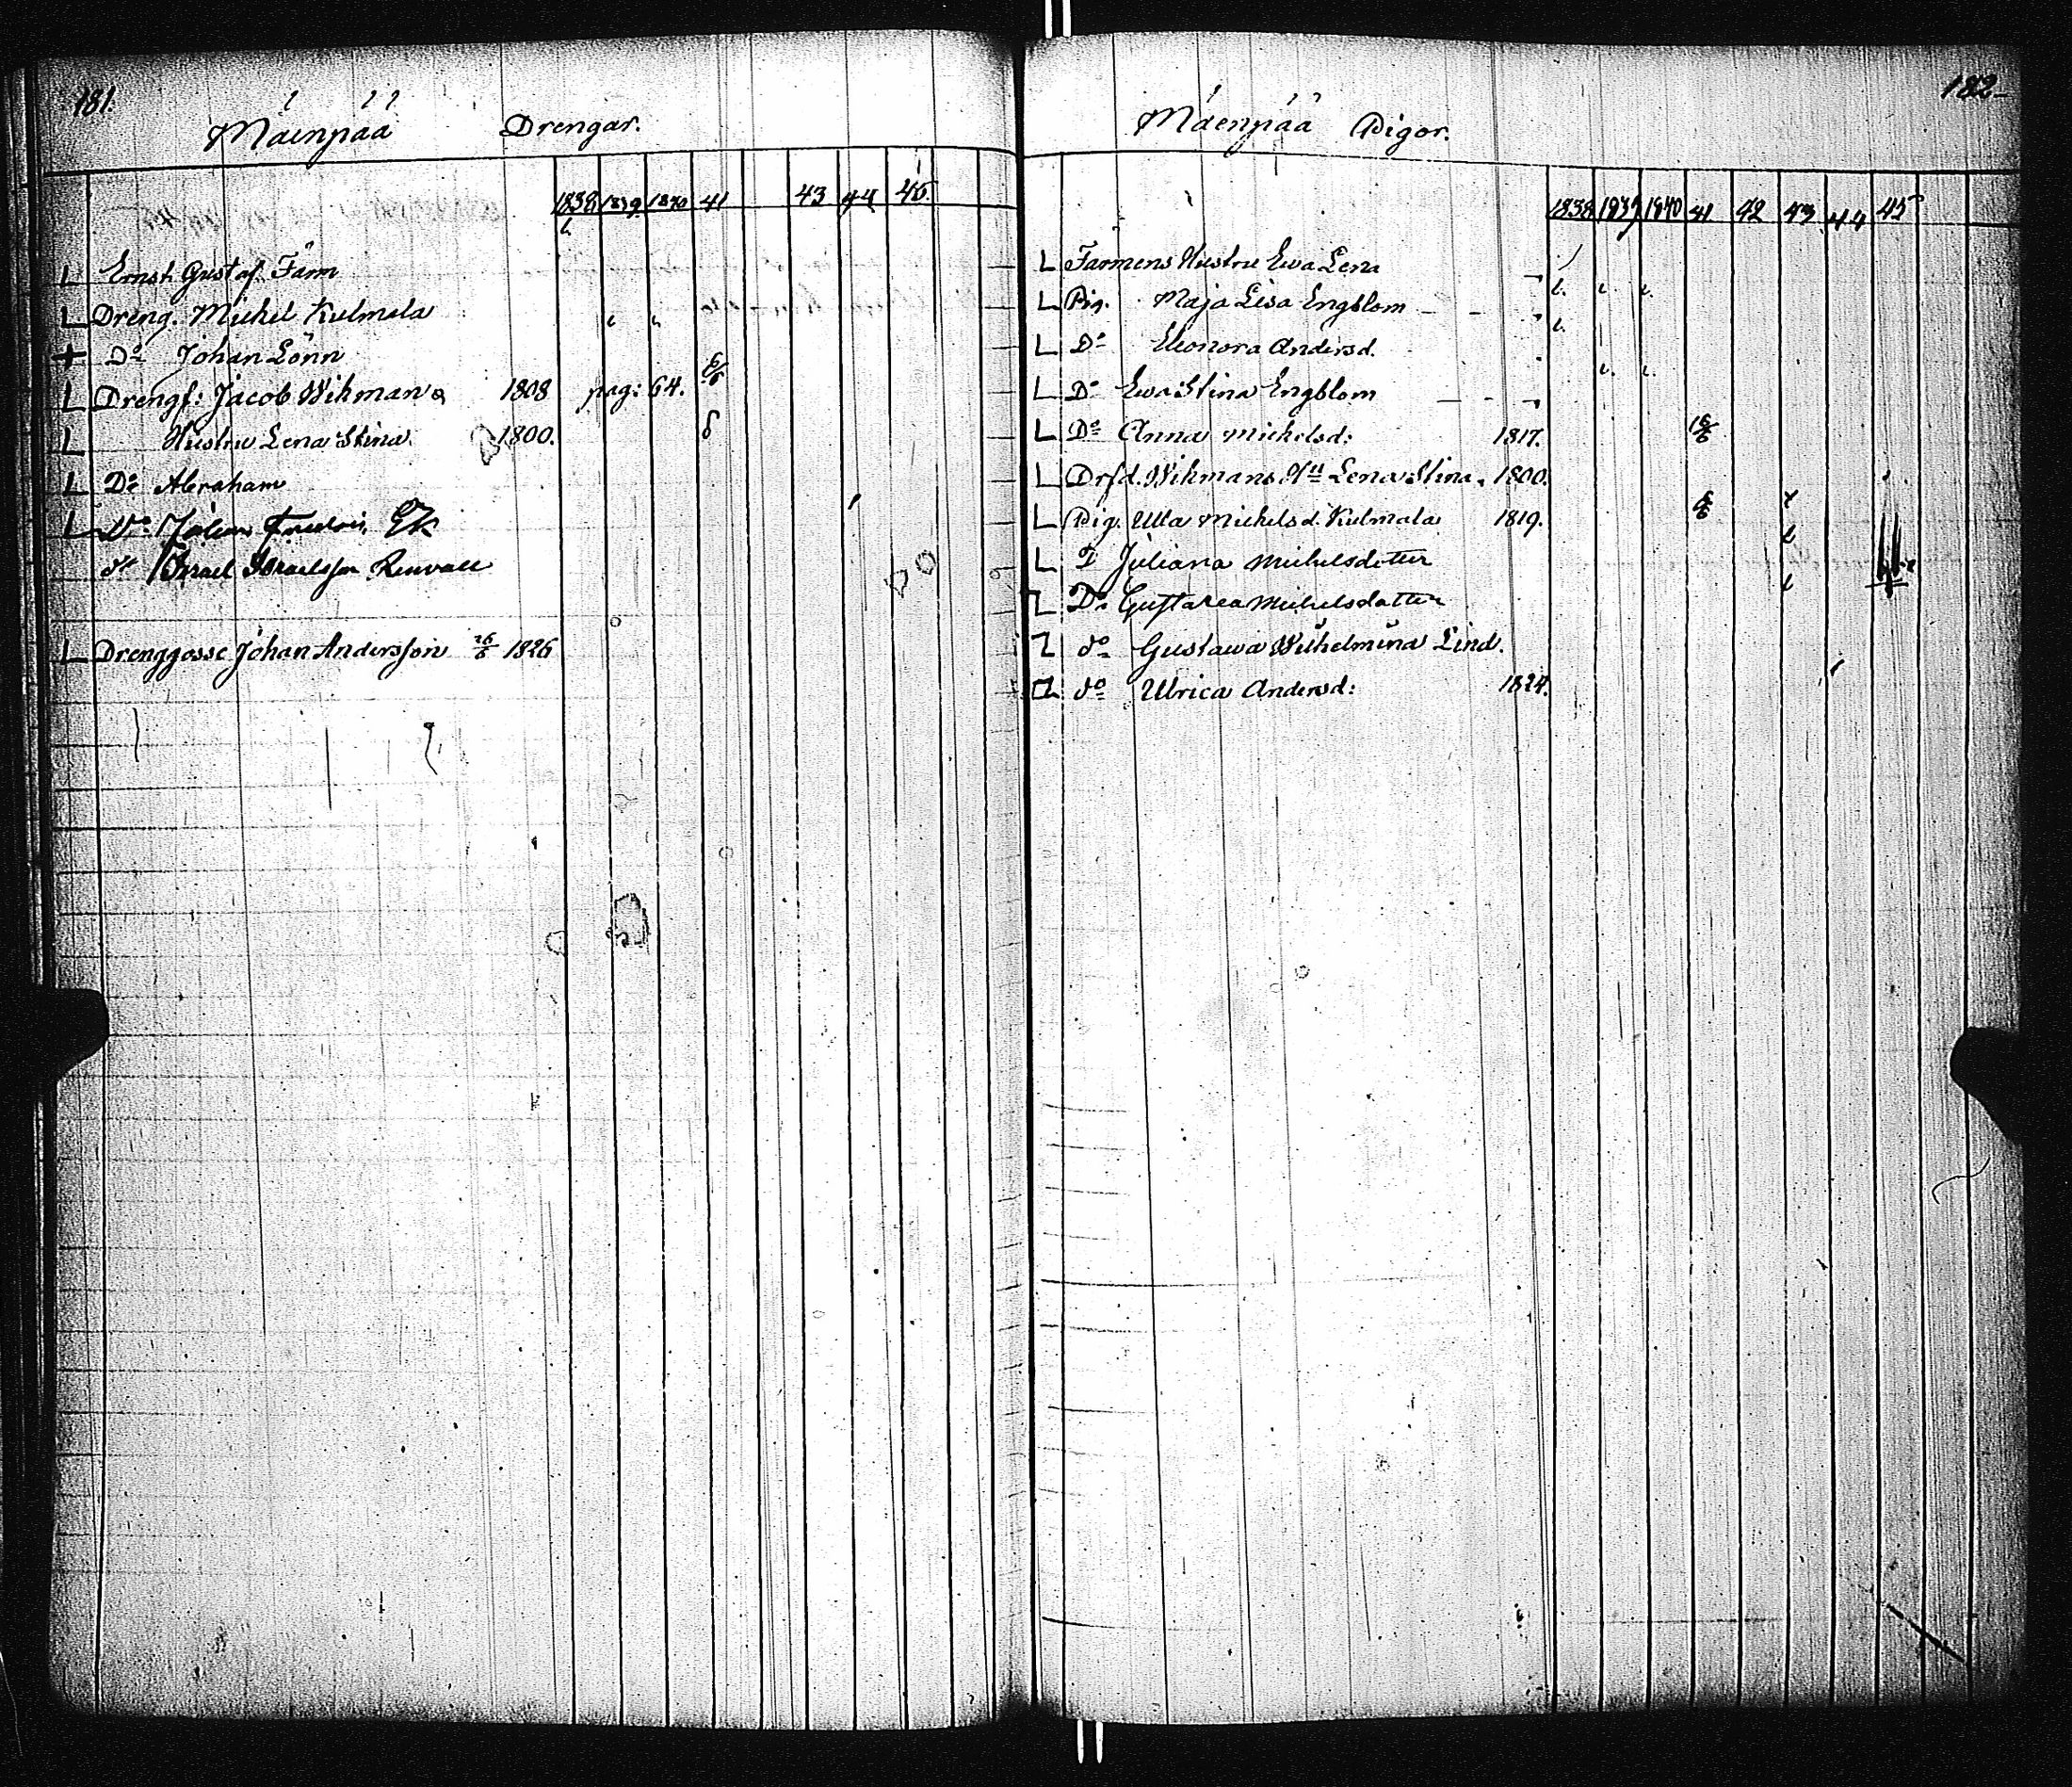 181.
Mäenpää Drengar.
1838 1839 1840 41 43 44 45.
Ernst Gustaf Färm
Dreng. Michel Kulmala
Do Johan Lönn
Drengf: Jacob Wikman 1808 pag: 64. 6/6
Hustru Lena Stina. 1800.
Do Abraham
Do Johan Ek
do Israel Israelsson Renvall
Drenggosse Johan Andersson 26/6 1826
182
Mäenpää Pigor.
1838 1839 1840 41 42 43 44 45
Färmens Hustru Ewa Lena
Pig. Maja Lisa Engblom
Do Eleonora Andersd.
Do Ewa Stina Engblom
Do Anna Michelsd: 1817.
Drfd. Wikmans Hu Lena Stina. 1800.
Pig. Ulla Michelsd. Kulmala 1819.
D Juliana Michelsdotter
Do Gustava Michelsdotter
do Gustawa Wilhelmina Lind.
do Ulrica Andersd: 1824.